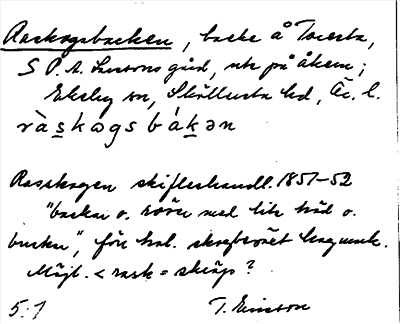 Raskogsbacken, backe å Tovesta,
S P. A. Larssons gård, ute på åkern;
Ekeby sn, Sköllersta hd, Äc. l.
ràs̲kogs bák̲ən
Rasskogen skifteshandl. 1851–52
"backar o. rösen med lite träd o.
buskar", förr hal. skogbevuxet
Möjl. < rask = skräp?
5:1 T. Ericsson